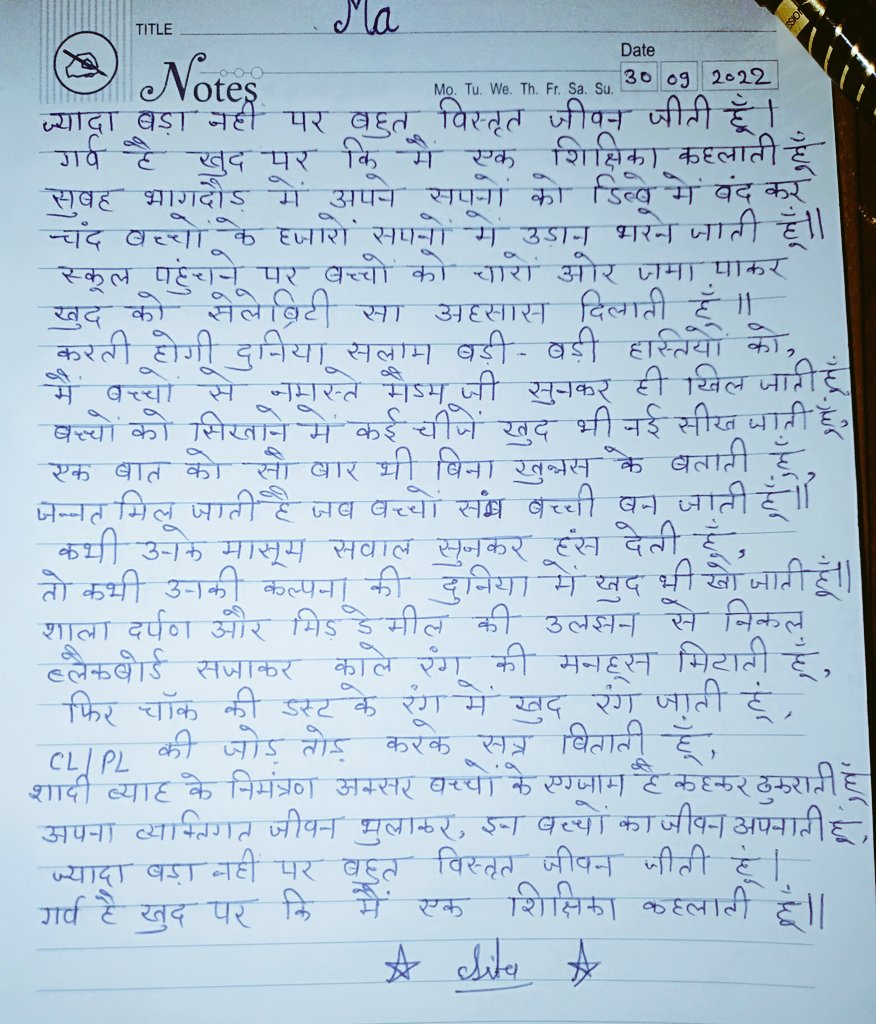 TITLE Ma
Date
Notes Mo. Tu. We. Th. Fr. Sa. Su. 30 09 2022
ज्यादा बड़ा नहीं पर बहुत विस्तृत जीवन जीती हूँ |
गर्व है खुद पर कि मैं एक शिक्षिका कहलाती हूँ
सुबह भागदौड़ में अपने सपनों को डिब्बे में बंद कर
चंद बच्चों के हजारों सपनों में उड़ान भरने जाती हूँ ||
स्कूल पहुंचने पर बच्चों को चारों ओर जमा पाकर
खुद को सेलेब्रिटी सा अहसास दिलाती हूँ ||
करती होगी दुनिया सलाम बड़ी - बड़ी हस्तियों को,
मैं बच्चों से नमस्ते मैडम जी सुनकर ही खिल जाती हूँ
बच्चों को सिखाने में कई चीजें खुद भी नई सीख जाती हूँ,
एक बात को सौ बार भी बिना खुन्नस के बताती हूँ,
जन्नत मिल जाती है जब बच्चों संग बच्ची बन जाती हूँ ||
कभी उनके मासूम सवाल सुनकर हंस देती हूँ,
तो कभी उनकी कल्पना की दुनिया में खुद भी खो जाती हूँ ||
शाला दर्पण और मिड डे मील की उलझन से निकल
ब्लैकबोर्ड सजाकर काले रंग की मनहूस मिटाती हूँ,
फिर चॉक की डस्ट के रंग में खुद रंग जाती हूं,
CL/PL की जोड़ तोड़ करके सत्र बिताती हूँ,
शादी ब्याह के निमंत्रण अक्सर बच्चों के एग्जाम है कहकर ठुकराती हूँ
अपना व्यक्तिगत जीवन भुलाकर, इन बच्चों का जीवन अपनाती हूं,
ज्यादा बड़ा नहीं पर बहुत विस्तृत जीवन जीती हूं |
गर्व है खुद पर कि मैं एक शिक्षिका कहलाती हूँ ||